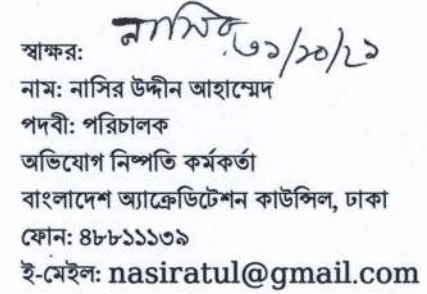 স্বাক্ষর: নাসির ৩১/১০/২১
নাম: নাসির উদ্দীন আহাম্মেদ
পদবী: পরিচালক
অভিযোগ নিষ্পতি কর্মকর্তা
বাংলাদেশ অ্যাক্রেডিটেশন কাউন্সিল, ঢাকা
ফোন: ৪৮৮১১১৩৯
ই-মেইল: nasiratul@gmail.com